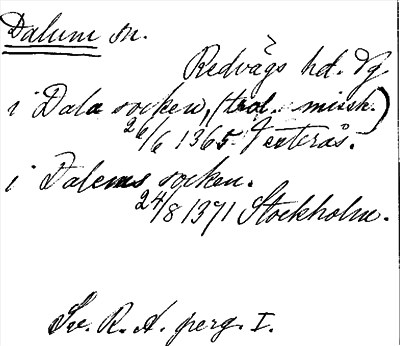 Dalum sn.
Redvägs hd. Vg
i Dala socken, (trol. missk.)
26/6 1365 Vexterås.
i Dalems socken.
24/8 1371 Stockholm.
Sv. R. A. perg. I.